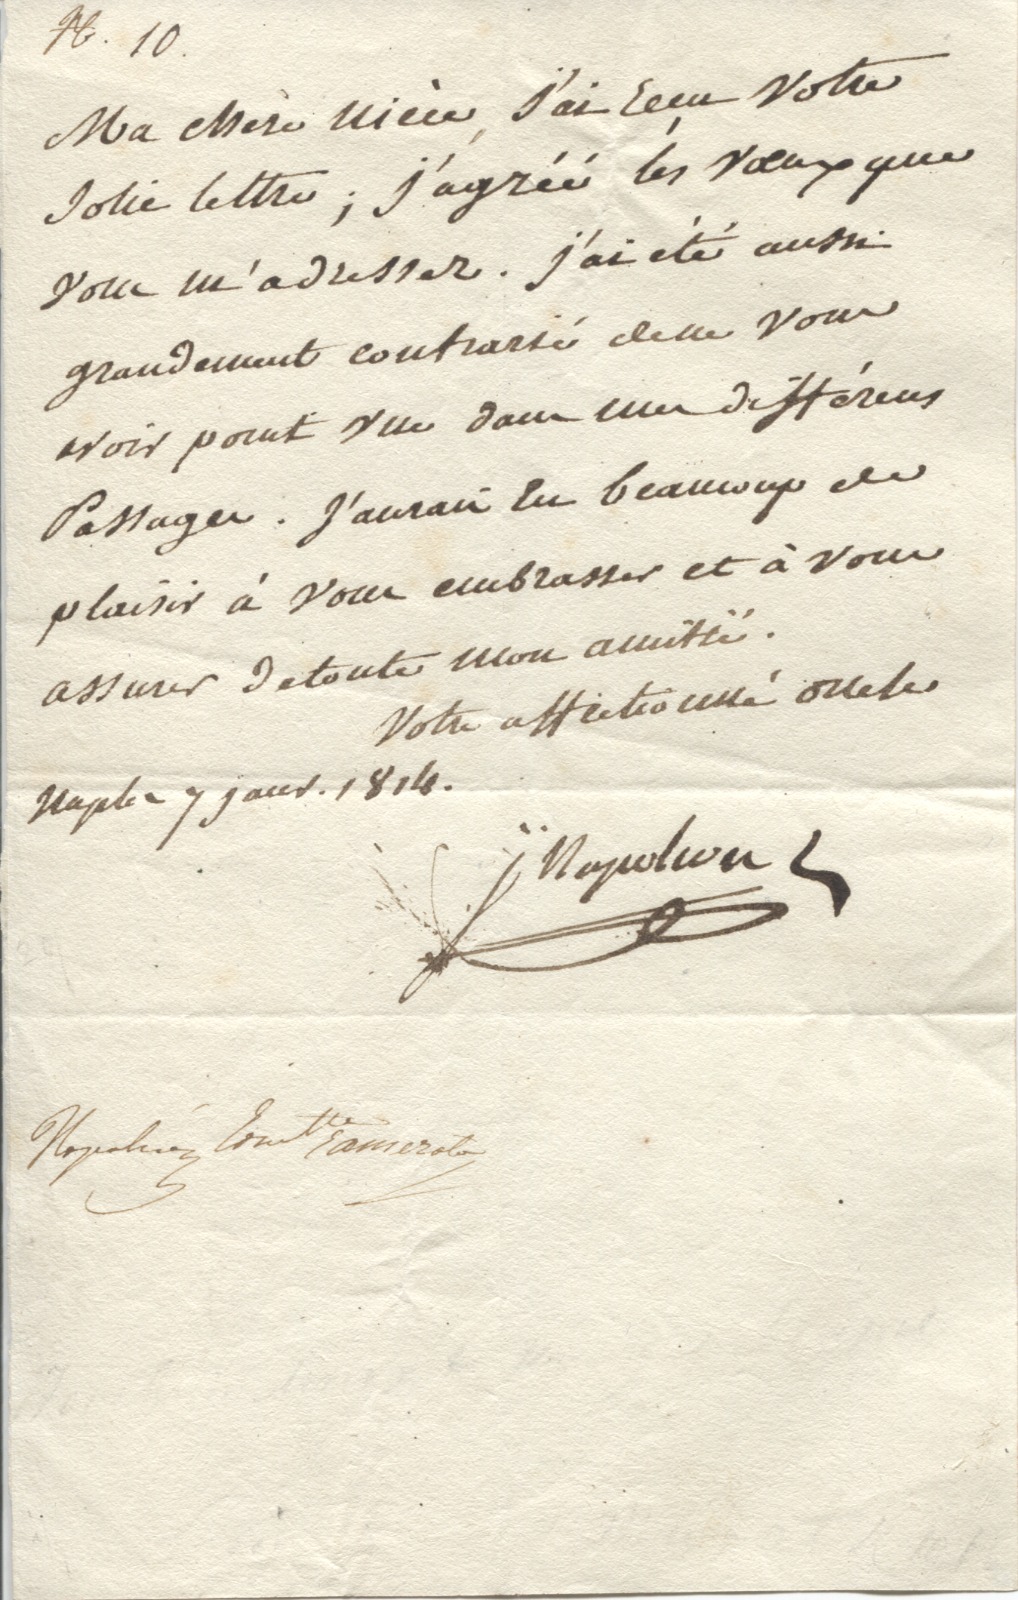 N. 10.
Ma chère nièce, j'ai recu votre
jolie lettre; j'agréé les vœux que
vous m'adressez. j'ai été aussi
grandement contrarié de ne vous
avoir point vue dans mes différens
Passages. J'aurais eu beaucoup de
plaisir à vous embrasser et à vous
assurer de toute mon amitié.
Votre affectionné oncle
Naples 7 janv. 1814.
J Napoleon
Napoléon Comtesse Camerata